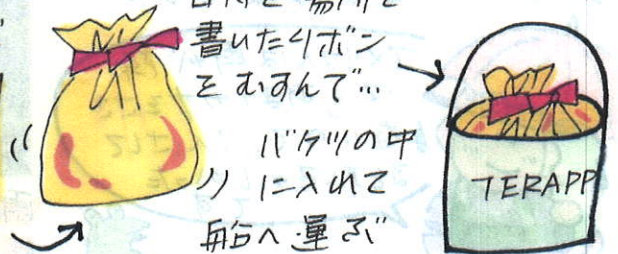 日時と場所を
書いたリボン
をむすんで…
バケツの中
に入れて
船へ運ぶ
TERAPP